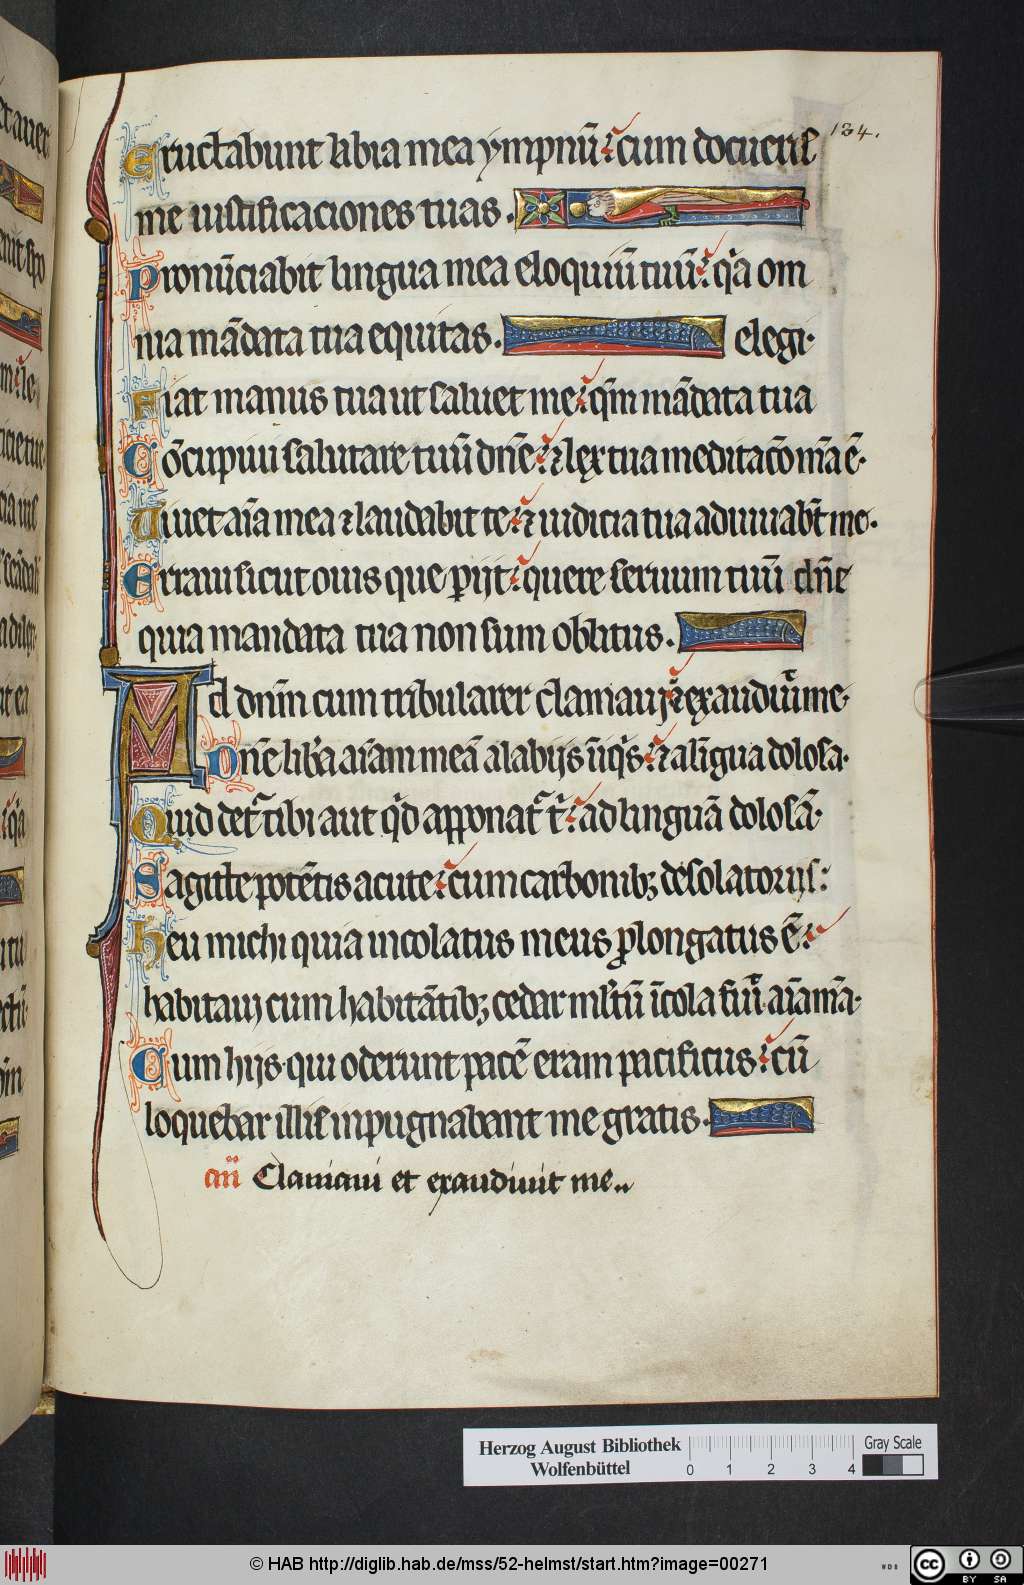 134.
Eructabunt labia mea ympnū: cum docueris
me iustificaciones tuas.
Pronūciabit lingua mea eloquiū tuū: q̃a om
nia mādata tua equitas. elegi.
Fiat manus tua ut saluet me: qm̄ mādata tua
Cōcupiui salutare tuū dn̄e: ⁊ lex tua meditac̄o m̄a ē.
Uiuet aīa mea ⁊ laudabit te: ⁊ iudicia tua adiuuabt̄ me.
Erraui sicut ouis que ꝑijt: quere seruum tuū dn̄e
quia mandata tua non sum oblitus.
Ad dn̄m cum tribularer clamaui: ⁊ exaudiuit me.
Dn̄e lib̄a aīam meā a labijs īiq̄s: ⁊ a līgua dolosa.
Quid det᷑ tibi aut q̇d apponat᷑ t̄: ad linguā dolosā.
Sagitte potētis acute: cum carbonibꝫ desolatorijs:
Heu michi quia incolatus meus ꝓlongatus ē:
habitaui cum habitātibꝫ cedar ml̄tū īcola fuit aīa m̄a.
Cum hijs qui oderunt pacē eram pacificus: cū
loquebar illis inpugnabant me gratis.
an̄ Clamaui et exaudiuit me..
Herzog August Bibliothek
Wolfenbüttel
0 1 2 3 4
Gray Scale
© HAB http://diglib.hab.de/mss/52-helmst/start.htm?image=00271
cc BY SA